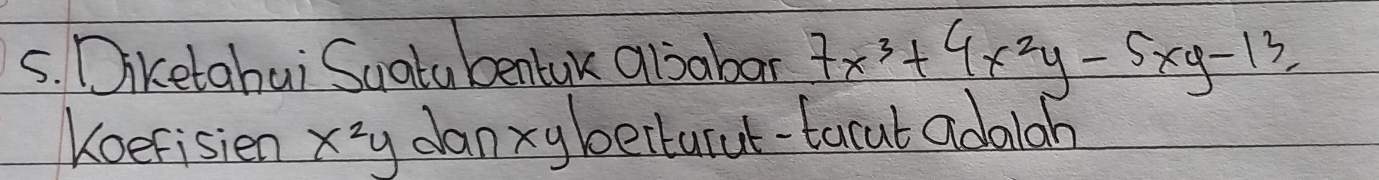 5. Diketahui Suatu bentuk aljabar 7x³ + 4x²y - 5xy - 13.
Koefisien x²y dan xy berturut-turut adalah